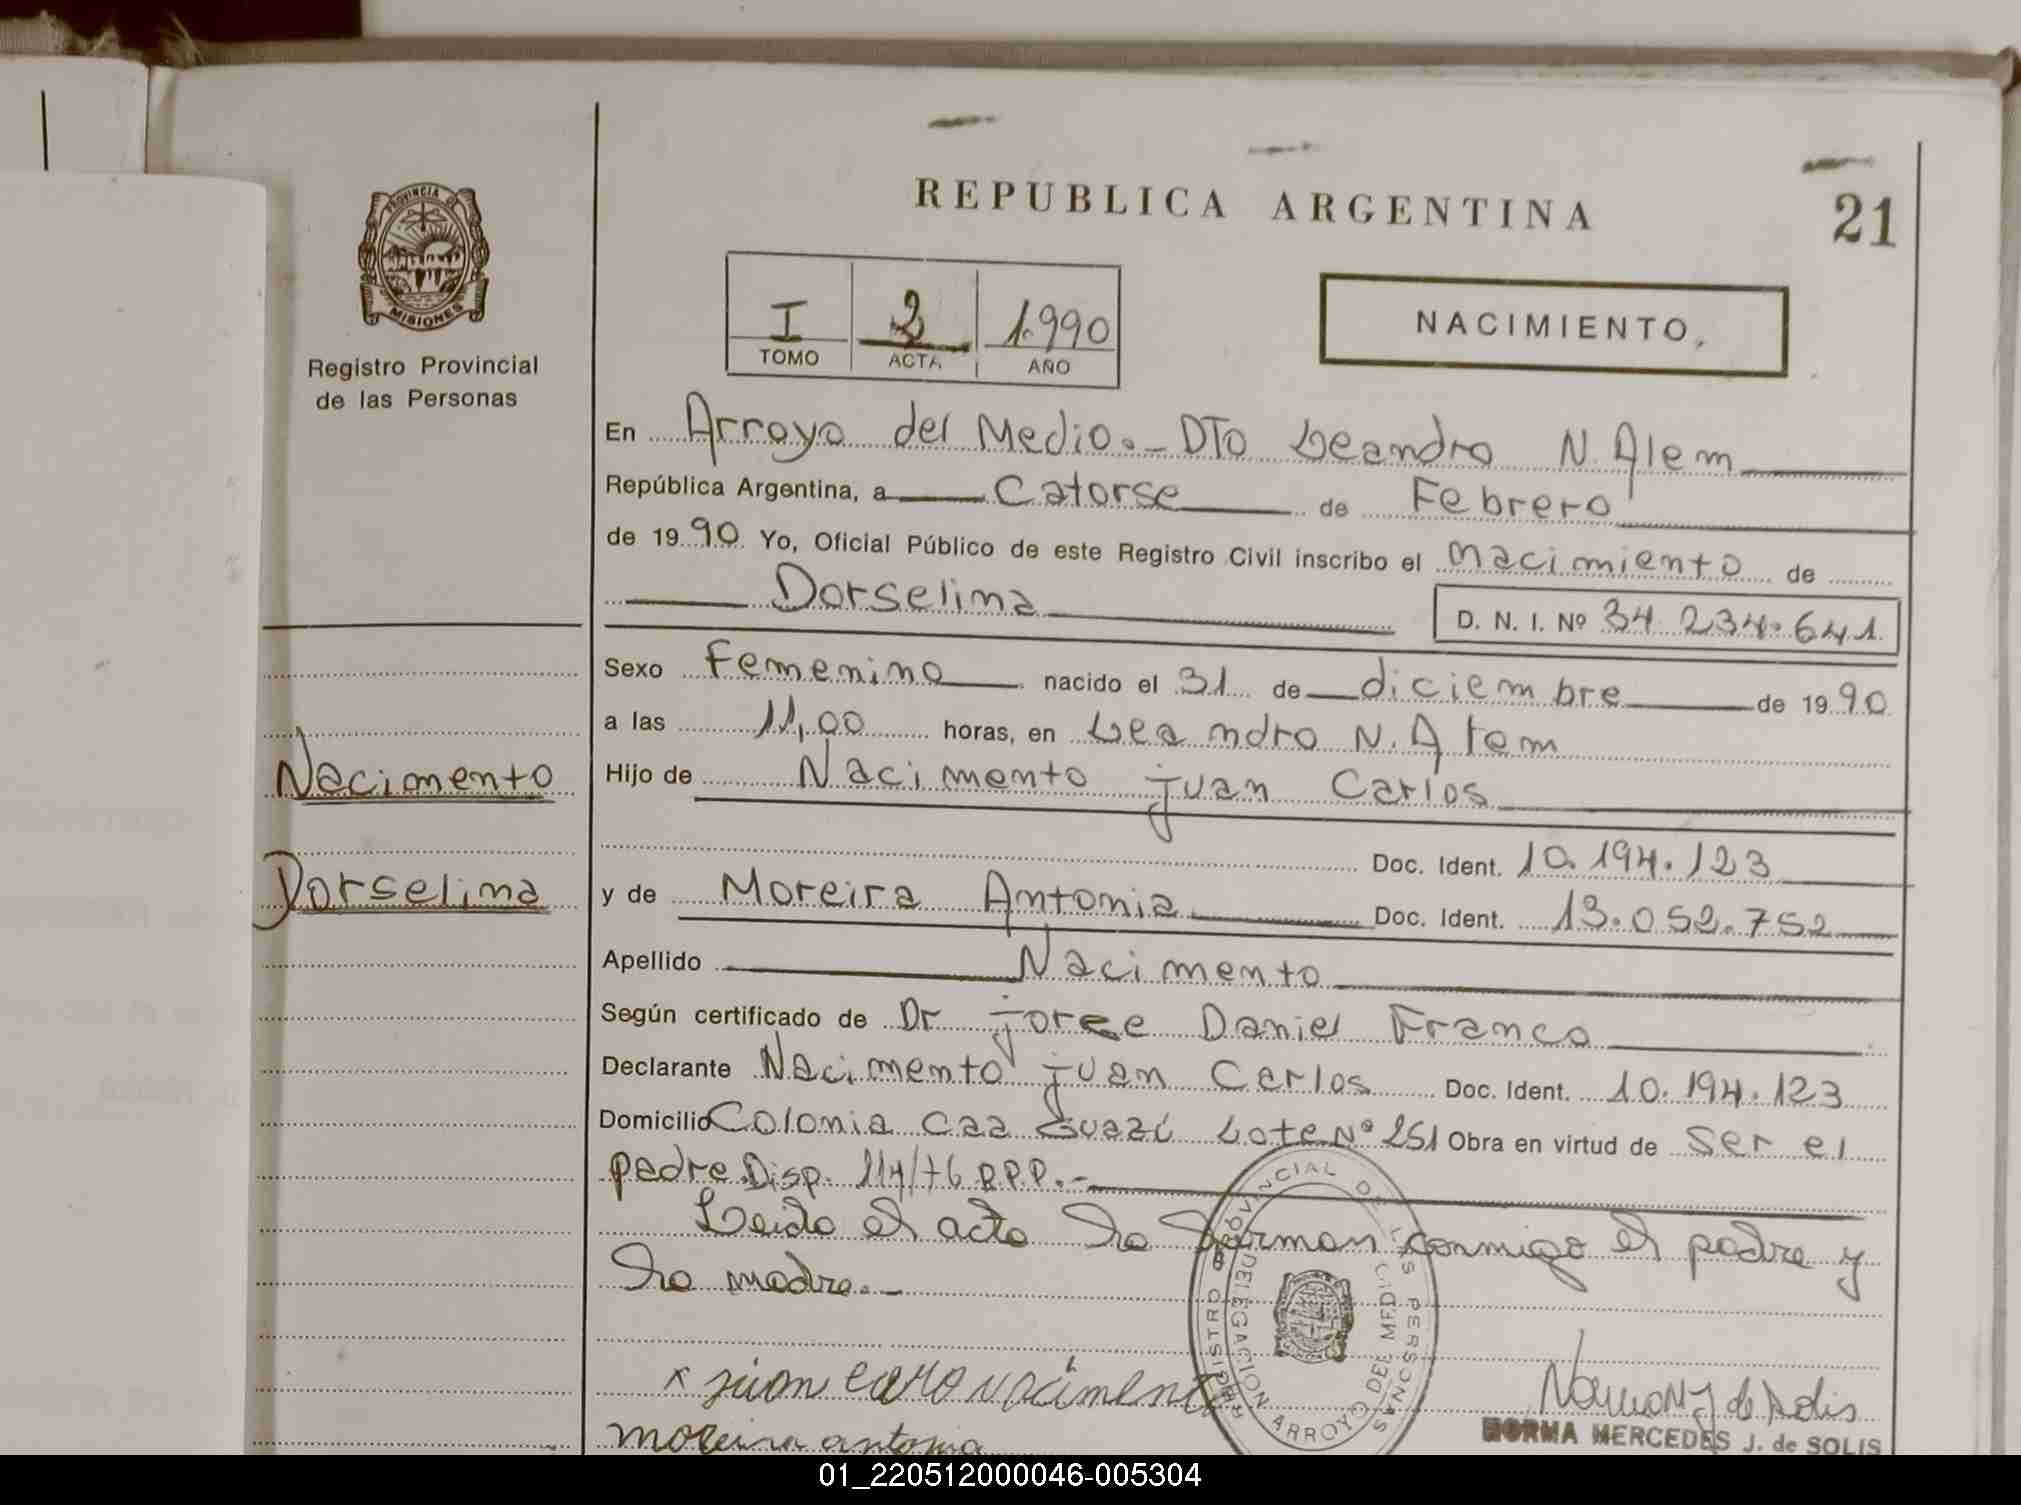 PROVINCIA DE
MISIONES
Registro Provincial
de las Personas
REPUBLICA ARGENTINA
21
I 2 1.990
TOMO ACTA AÑO
NACIMIENTO
En Arroyo del Medio.- DTO Leandro N. Alem
República Argentina, a Catorse de Febrero
de 1990 Yo, Oficial Público de este Registro Civil inscribo el nacimiento de
Dorselina D. N. I. Nº 34.234.641
Sexo Femenino nacido el 31 de diciembre de 1990
a las 11,00 horas, en Leandro N. Alem
Nacimento
Hijo de Nacimento juan Carlos
Doc. Ident. 10.194.123
Dorselina
y de Moreira Antonia Doc. Ident. 13.052.752
Apellido Nacimento
Según certificado de Dr jorge Daniel Franco
Declarante Nacimento juan Carlos Doc. Ident. 10.194.123
Domicilio Colonia Caa Guazú Lote Nº 251 Obra en virtud de ser el
padre. Disp. 114/76 R.P.P.-
Leida el acta la firman conmigo el padre y
la madre.-
REGISTRO PROVINCIAL DE LAS PERSONAS
DELEGACION ARROYO DEL MEDIO
x juan carlo nacimento
moreira antonia
NORMA MERCEDES J. de SOLIS
01_220512000046-005304